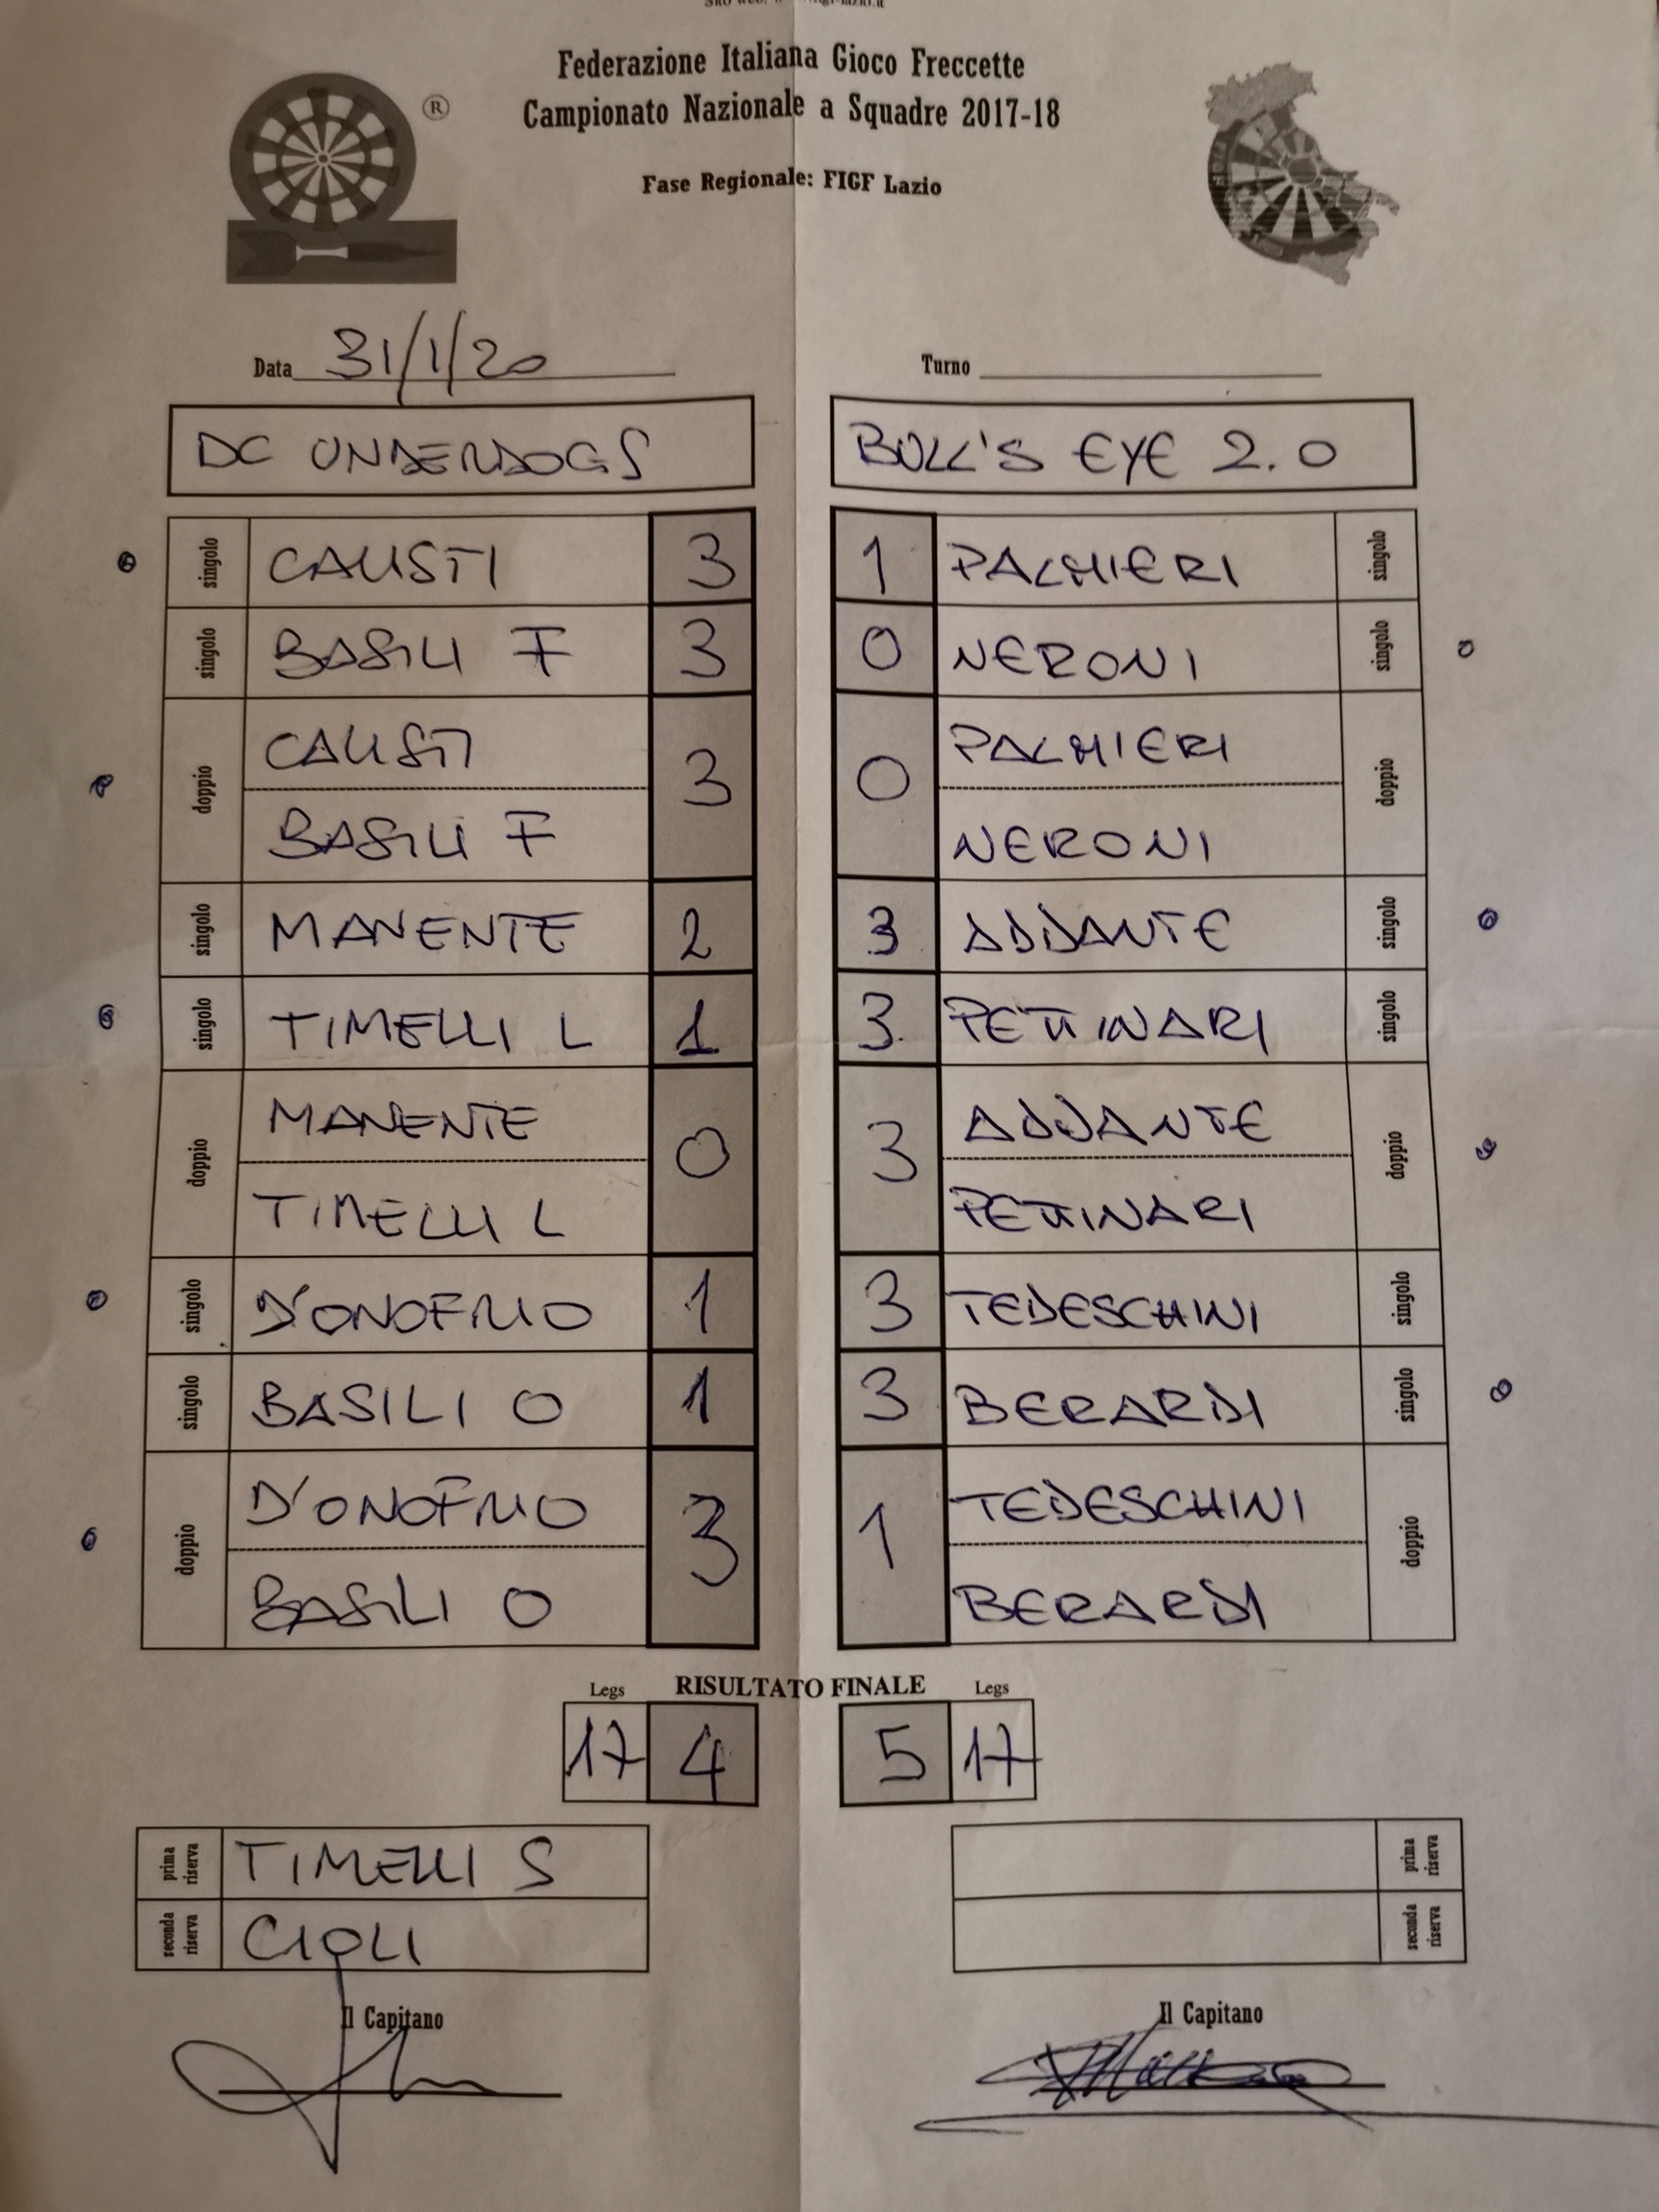 Federazione Italiana Gioco Freccette
®
Campionato Nazionale a Squadre 2017-18
Fase Regionale: FIGF Lazio
Data 31/1/20 Turno
DC UNDERDOGS BULL'S EYE 2.0
singolo CAUSTI 3 1 PALMIERI singolo
singolo BASILI F 3 0 NERONI singolo
CAUSTI PALMIERI
doppio 3 0 doppio
BASILI F NERONI
singolo MANENTE 2 3 ADDANTE singolo
singolo TIMELLI L 1 3 PETTINARI singolo
MANENTE ADDANTE
doppio 0 3 doppio
TIMELLI L PETTINARI
singolo D'ONOFRIO 1 3 TEDESCHINI singolo
singolo BASILI O 1 3 BERARDI singolo
D'ONOFRIO TEDESCHINI
doppio 3 1 doppio
BASILI O BERARDI
Legs RISULTATO FINALE Legs
17 4 5 17
prima riserva TIMELLI S prima riserva
seconda riserva CIOLI seconda riserva
Il Capitano Il Capitano